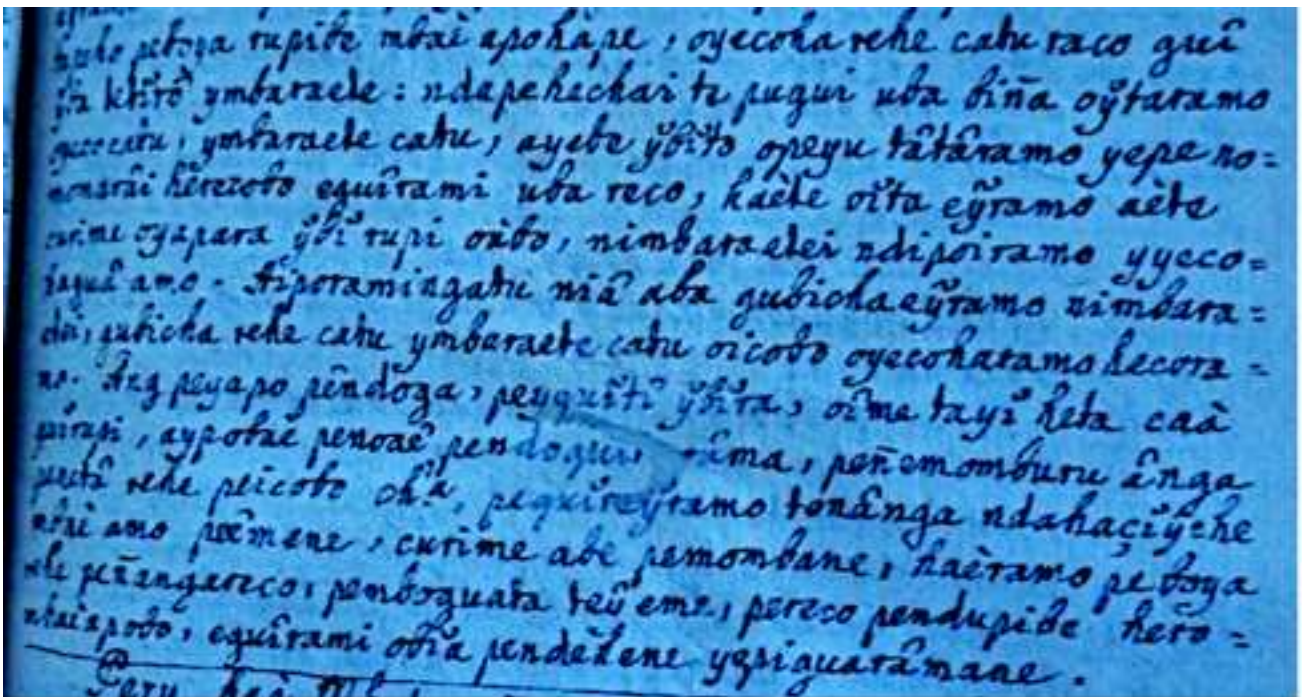 peboya rupibe mbaè apohápe, oyecoha rehe catu raco guî
ymbaraete: ndapehechai te pugui uba biña oỹtaramo
ymbaraete catu, ayebe ỹbĭto opeyu tâtâramo yepe no=
hêrecobo eguîrami uba reco, haète oĭta eỹramo aète
curime oyapara ỹbĭ rupi oàbo, nimbaraetei ndipoiramo yyeco=
haguâ amo. Aiporamingatu niâ aba gubicha eỹramo nimbara=
etei, gubicha rehe catu ymbaraete catu oicobo oyecoharamo hecora=
mo. Ang peyapo pêndoga, peyquĭtĭ ỹbĭra, oĭme tayĭ heta caà
rupi, aypobae penoaê pendogui râma, peñemomburu ânga
rehe peicobo oh.ª, pequĭreỹramo tonânga ndahaçĭỹche
mbaè amo peême ne, curime abe pemombane, haèramo pe boya
rehe peñangareco, pemboguata teŷ eme, pereco pendupibe hero=
mbaèapobo, eguîrami obĭa pendèbene yepiguarâmane.